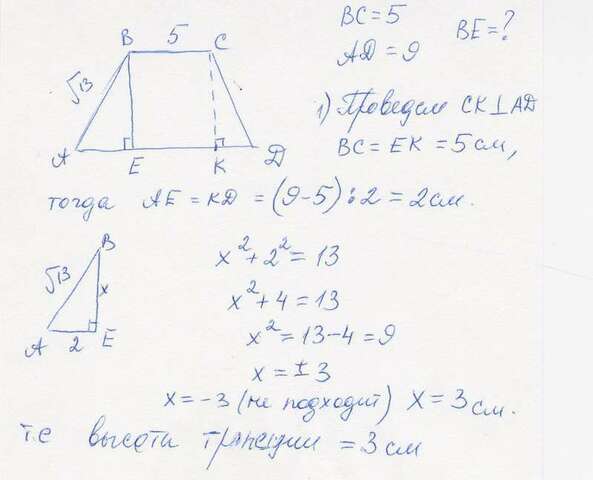 BC = 5
AD = 9
BE = ?
B 5 C
√13
A E K D
1) Проведем CK ⊥ AD
BC = EK = 5 см,
тогда AE = KD = (9-5):2 = 2 см.
B
√13 x
A 2 E
x² + 2² = 13
x² + 4 = 13
x² = 13-4 = 9
x = ±3
x = -3 (не подходит) x = 3 см.
т.е высота трапеции = 3 см